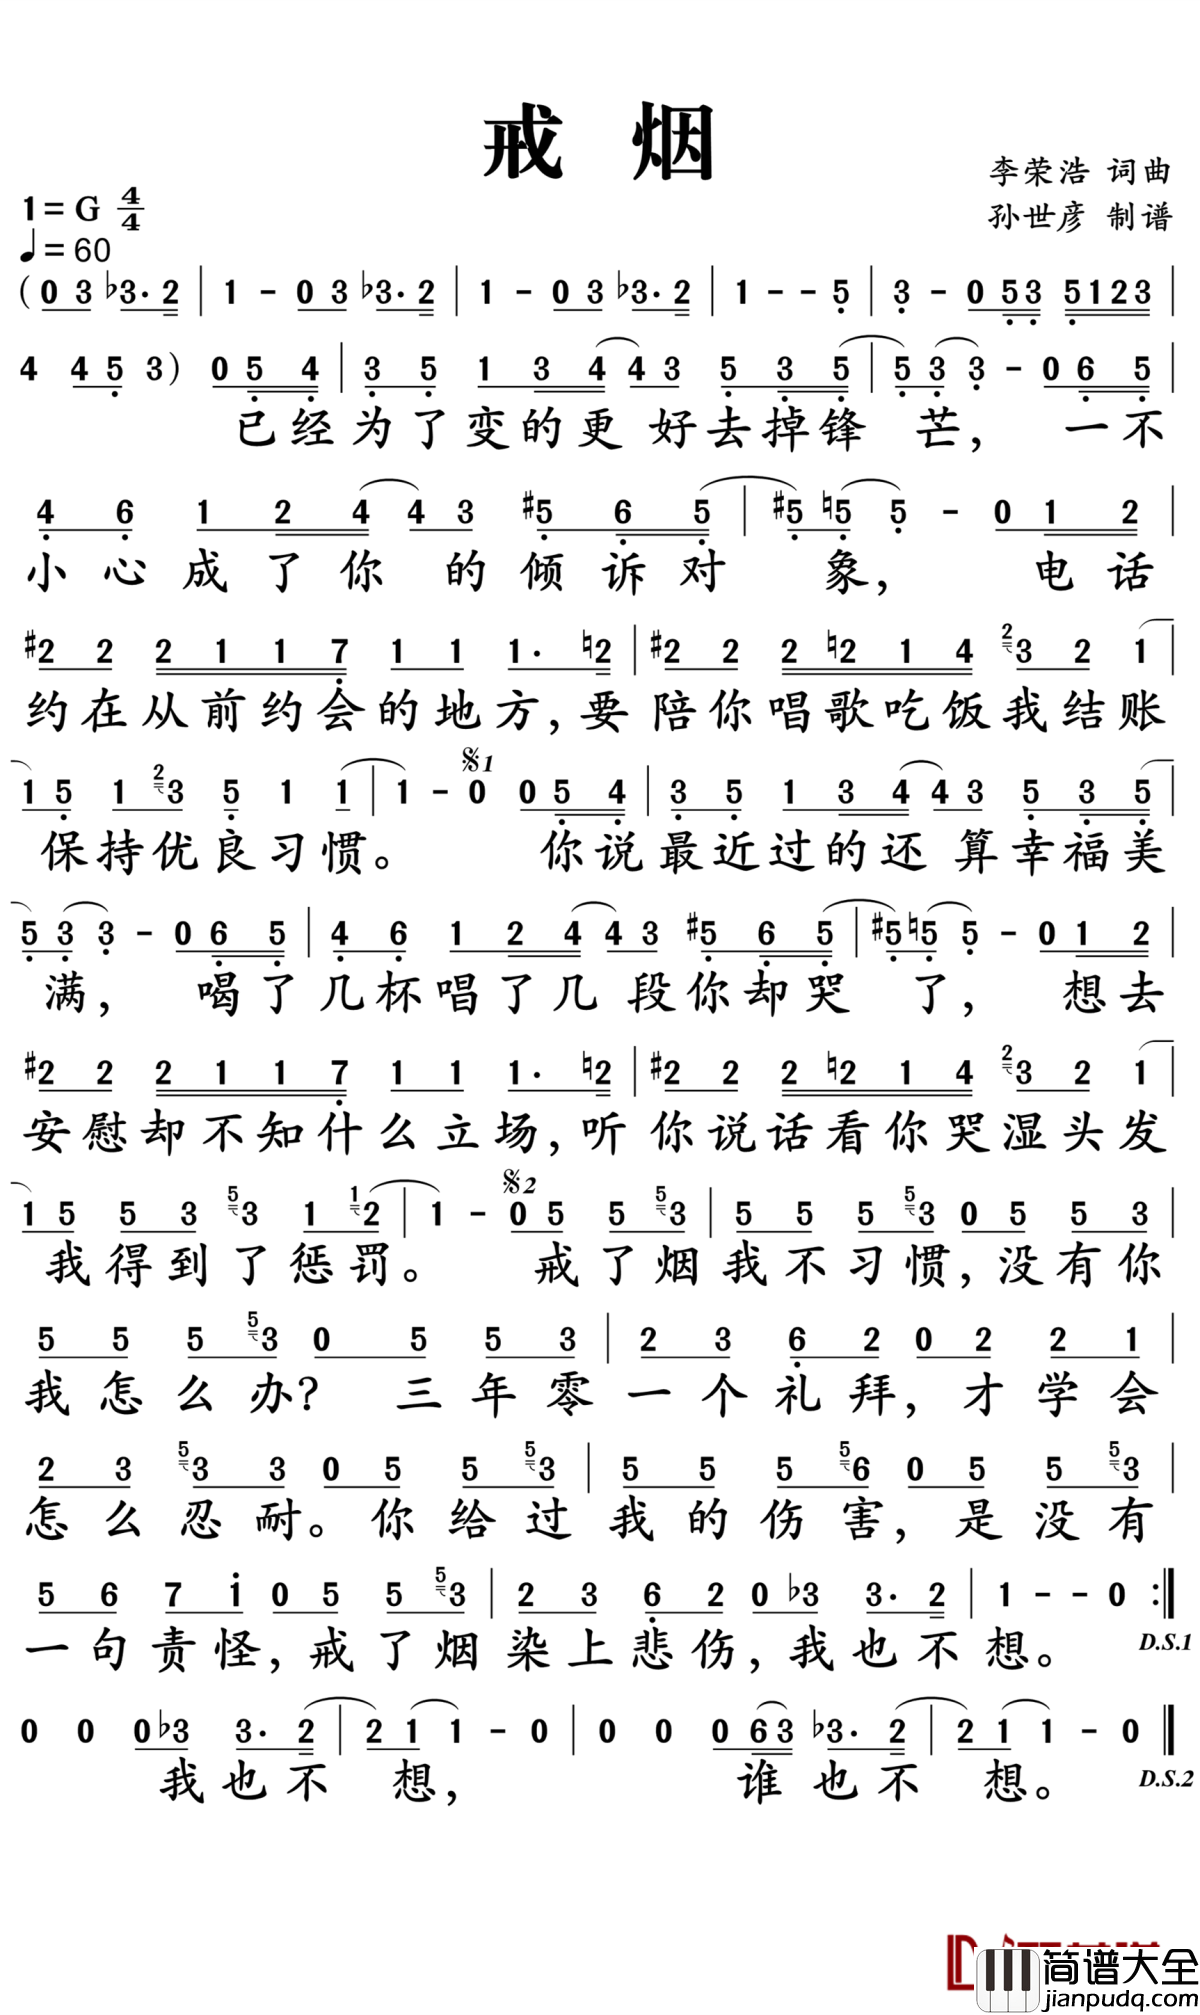 戒 烟
李荣浩 词曲
1=G 4/4
孙世彦 制谱
♩=60
(0 3 ♭3· 2 | 1 - 0 3 ♭3· 2 | 1 - 0 3 ♭3· 2 | 1 - - 5̣ | 3̣ - 0 5̣ 3̣ 5̣ 1 2 3 |
4 4 5̣ 3) 0 5̣ 4̣ | 3̣ 5̣ 1 3 4 4 3 5̣ 3̣ 5̣ | 5̣ 3̣ 3̣ - 0 6̣ 5̣ |
已经为了变的更 好去掉锋 芒, 一不
4̣ 6̣ 1 2 4 4 3 #5̣ 6̣ 5̣ | #5̣ ♮5̣ 5̣ - 0 1 2 |
小心成了你 的倾诉对 象, 电话
#2 2 2 1 1 7̣ 1 1 1· ♮2 | #2 2 2 ♮2 1 4 2 3 2 1 |
约在从前约会的地方,要陪你唱歌吃饭我结账
𝄋1
1 5̣ 1 2 3 5̣ 1 1 | 1 - 0 0 5̣ 4̣ | 3̣ 5̣ 1 3 4 4 3 5̣ 3̣ 5̣ |
保持优良习惯。 你说最近过的还 算幸福美
5̣ 3̣ 3̣ - 0 6̣ 5̣ | 4̣ 6̣ 1 2 4 4 3 #5̣ 6̣ 5̣ | #5̣ ♮5̣ 5̣ - 0 1 2 |
满, 喝了几杯唱了几 段你却哭 了, 想去
#2 2 2 1 1 7̣ 1 1 1· ♮2 | #2 2 2 ♮2 1 4 2 3 2 1 |
安慰却不知什么立场,听你说话看你哭湿头发
𝄋2
1 5 5 3 5 3 1 1 2 | 1 - 0 5 5 5 3 | 5 5 5 5 3 0 5 5 3 |
我得到了惩罚。 戒了烟我不习惯,没有你
5 5 5 5 3 0 5 5 3 | 2 3 6̣ 2 0 2 2 1 |
我怎么办? 三年零一个礼拜,才学会
2 3 5 3 3 0 5 5 5 3 | 5 5 5 5 6 0 5 5 5 3 |
怎么忍耐。你给过我的伤害,是没有
5 6 7 1̇ 0 5 5 5 3 | 2 3 6̣ 2 0 ♭3 3· 2 | 1 - - 0 :‖
一句责怪,戒了烟染上悲伤,我也不想。 D.S.1
0 0 0 ♭3 3· 2 | 2 1 1 - 0 | 0 0 0 6 3 ♭3· 2 | 2 1 1 - 0 ‖
我也不 想, 谁也不 想。 D.S.2
简谱大全
jianpudq.com